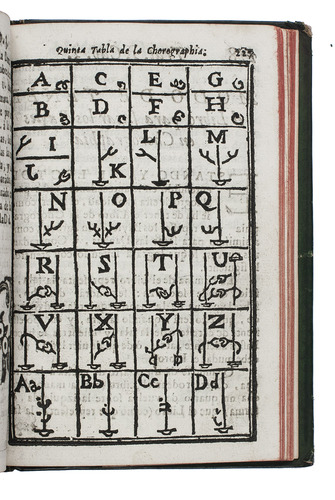 Quinta Tabla de la Chorographia.
A C E G
B D F H
I K L M
J
N O P Q
R S T U
V X Y Z
Aa Bb Cc Dd